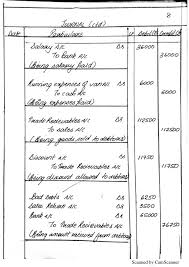 8
Journal (ctd)
Date Particulars LF Debit(₹) Credit(₹)
Salary A/c Dr 36000
To Bank A/c 36000
(Being salary paid)
Running expenses of van A/c Dr
To cash A/c
(Being expenses paid)
Trade Receivables A/c Dr 112500
To sales A/c 112500
(Being goods sold to debtors)
Discount A/c Dr 11250
To Trade Receivables A/c 11250
(Being discount allowed to debtors)
Bad debts A/c Dr
Sales Return A/c Dr
Bank A/c Dr
To Trade Receivables A/c 76750
(Being amount received from debtors)
Scanned by CamScanner